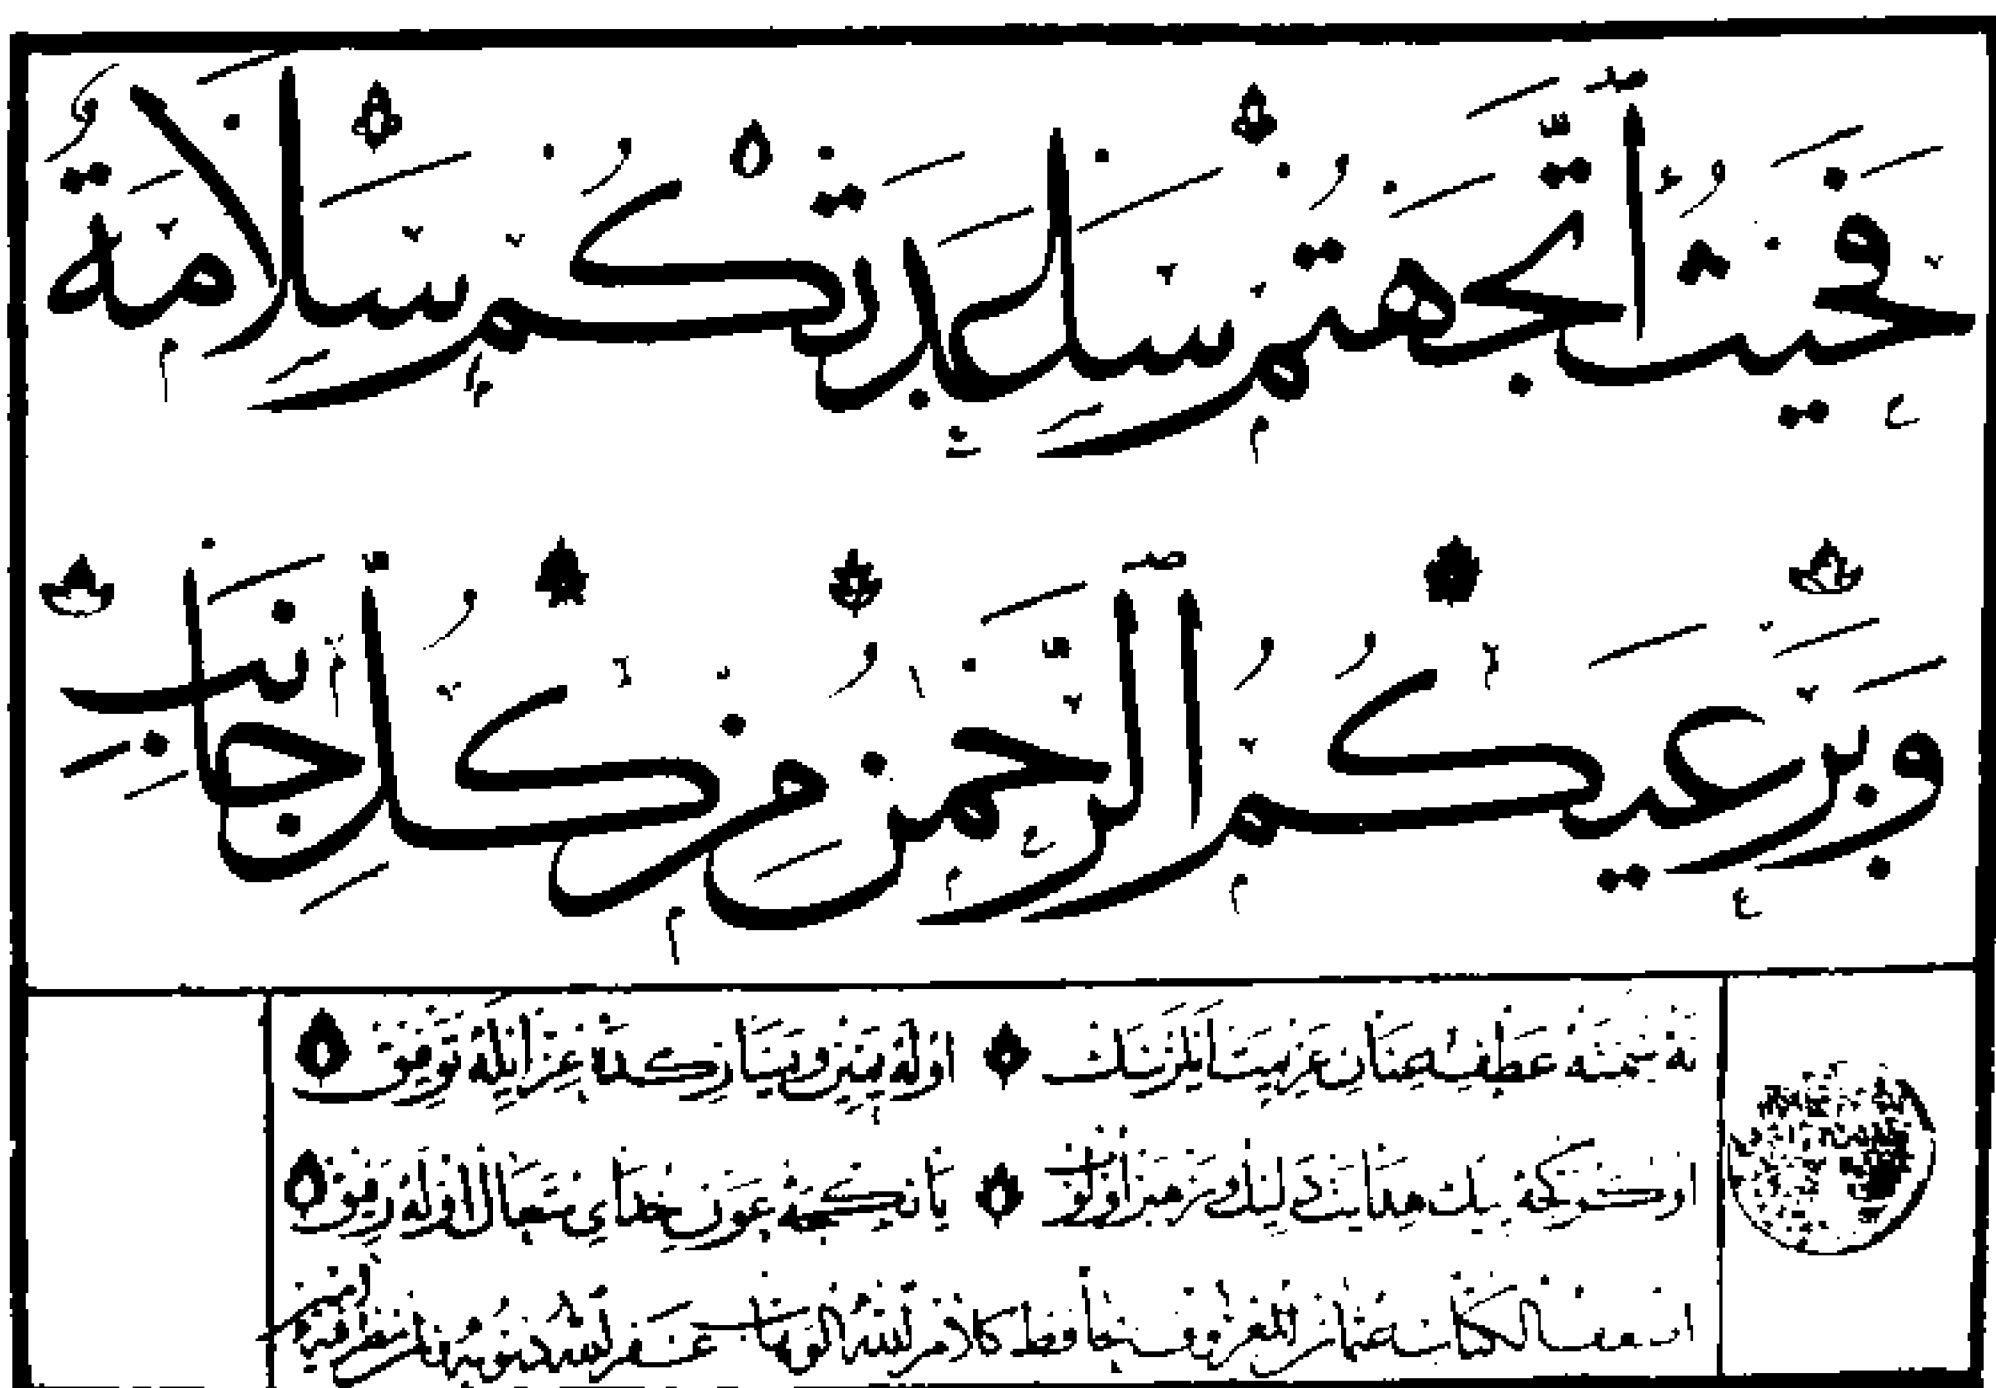 فَحَيْثُ اتَّجَهْتُمْ سَاعَدَتْكُمْ سَلَامَةٌ
وَيَرْعَيكُمُ الرَّحْمَنُ مِنْ كُلِّ جَانِبِ
نه سمته عطف عنان عزيمت ايلرسك اوله يمين ويساركده عز ايله توفيق
اوكونجه پيك هدايت دليل ورهبر اولوب يانكجه عون خداى متعال اوله رفيق
اضعف الكتاب عثمان المعروف بحافظ كلام الله الوهاب غفر الله ذنوبه